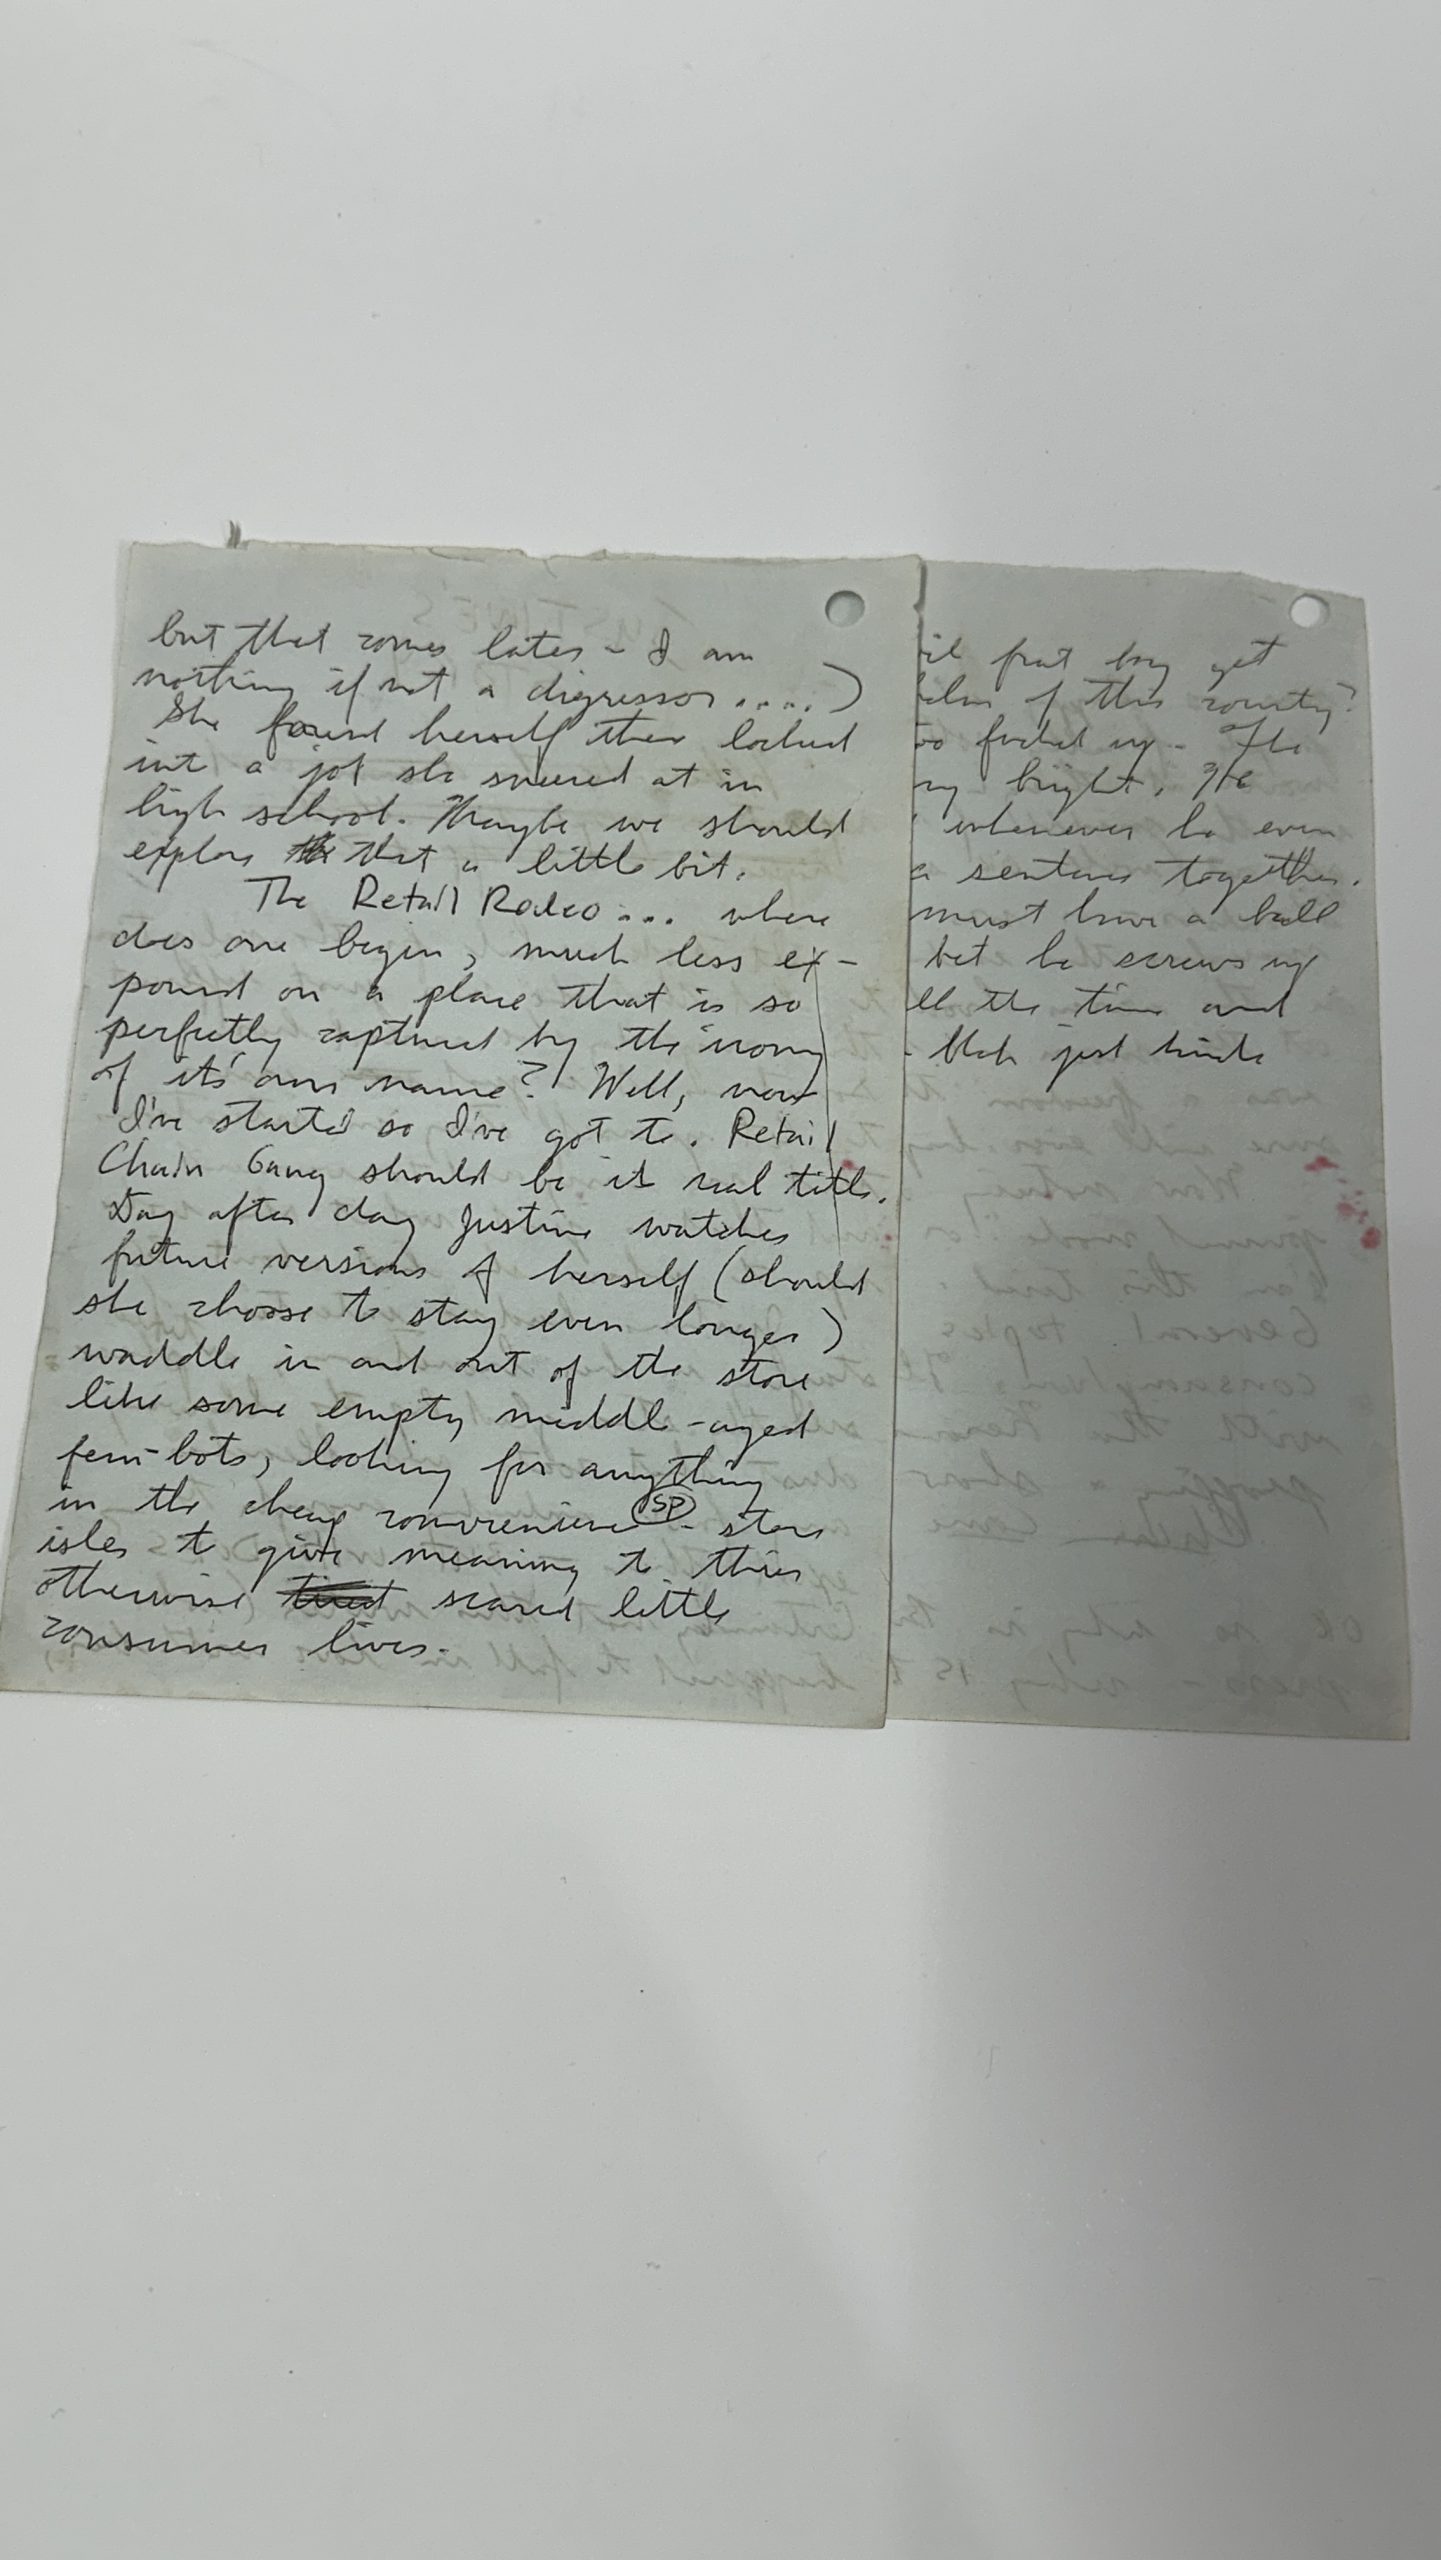 but that comes later - I am
nothing if not a digressor....)
She found herself then locked
into a job she sneered at in
high school. Maybe we should
explore that a little bit.
The Retail Rodeo... where
does one begin, much less ex-
pound on a place that is so
perfectly captured by the irony
of it's own name? Well, now
I've started so I've got to. Retail
Chain Gang should be its real title.
Day after day Justine watches
future versions of herself (should
she choose to stay even longer)
waddle in and out of the store
like some empty middle-aged
fem-bots, looking for anything
in the cheap convenience SP - store
isles to give meaning to their
otherwise scared little
consumer lives.
frat boy get
of this country?
fucked up - The
bright. He
whenever he even
a sentence together.
must have a ball
bet he screws up
the time and
- Blah just kinda